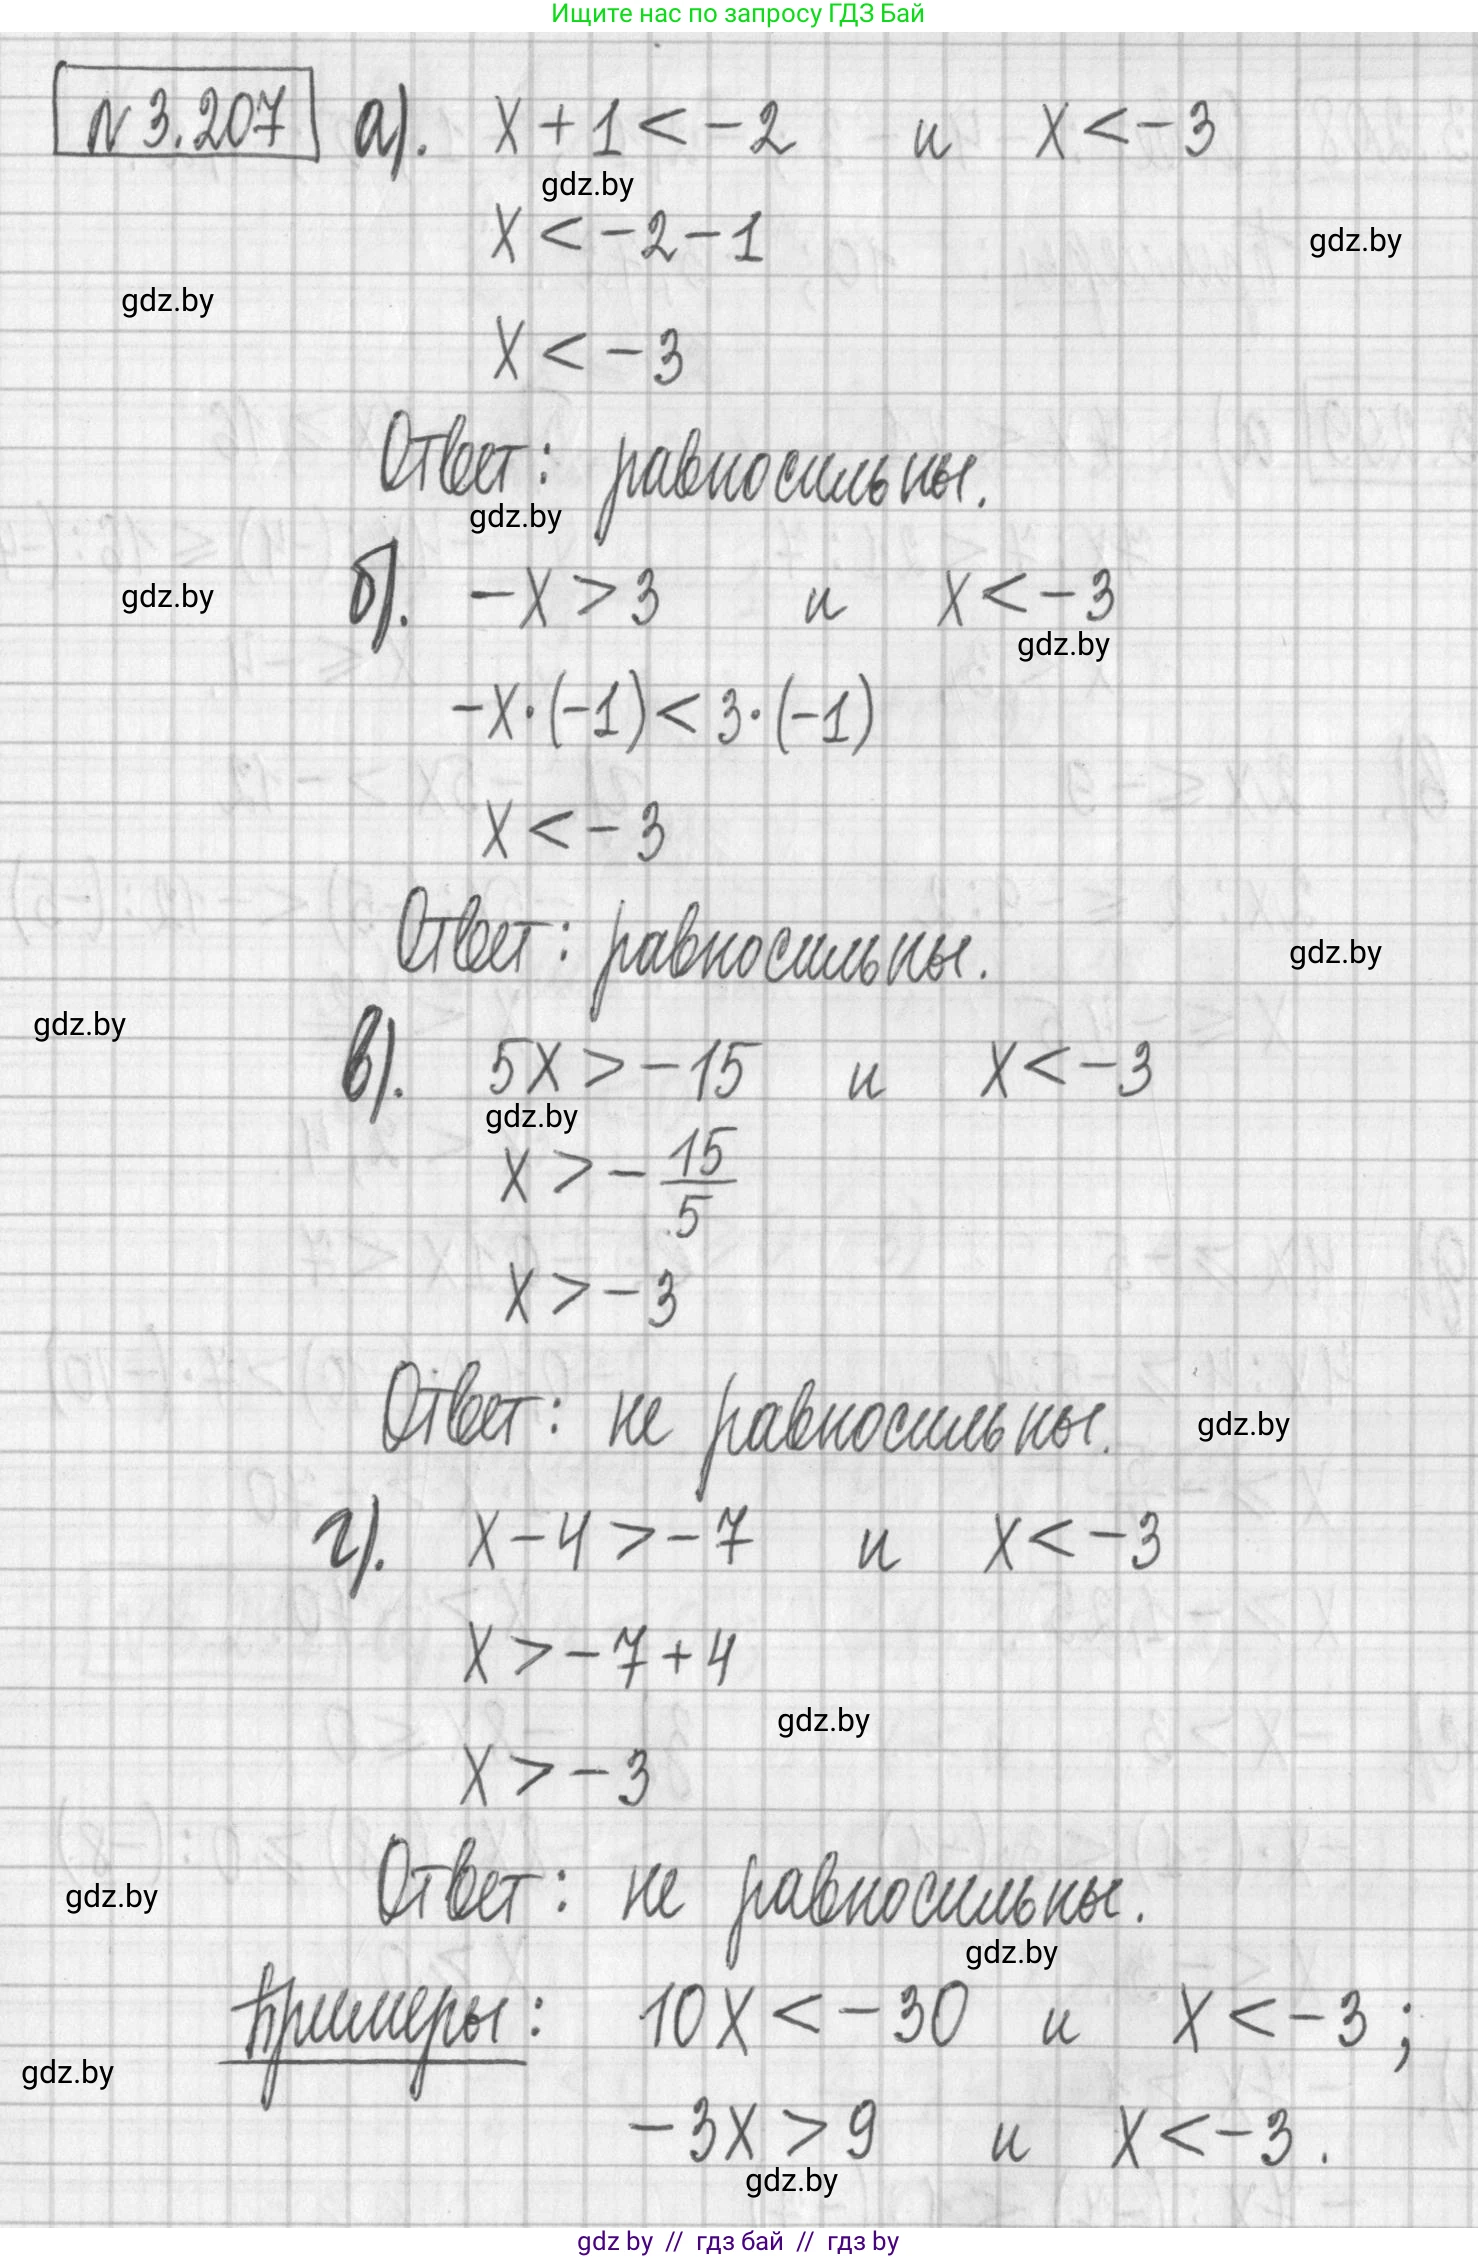 Ищите нас по запросу ГДЗ Бай
№ 3.207 а). x + 1 < -2 и x < -3
gdz.by
x < -2 - 1
gdz.by
gdz.by
x < -3
Ответ: равносильны.
gdz.by
gdz.by
б). -x > 3 и x < -3
gdz.by
-x·(-1) < 3·(-1)
x < -3
Ответ: равносильны.
gdz.by
gdz.by
в). 5x > -15 и x < -3
gdz.by
x > -15/5
x > -3
Ответ: не равносильны.
gdz.by
г). x - 4 > -7 и x < -3
x > -7 + 4
gdz.by
x > -3
Ответ: не равносильны.
gdz.by
gdz.by
Примеры: 10x < -30 и x < -3;
gdz.by
-3x > 9 и x < -3.
gdz.by
gdz by // гдз бай // гдз by